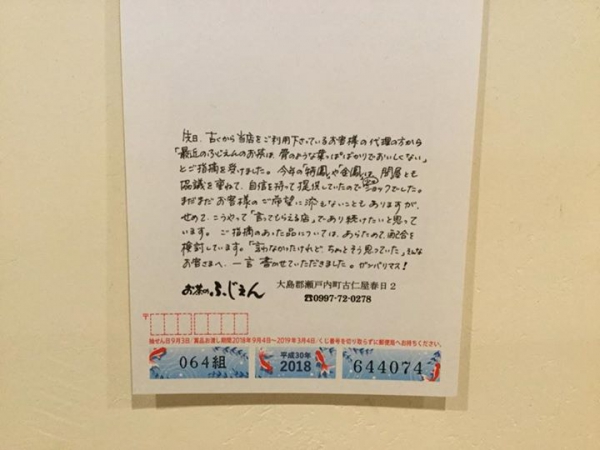 先日、古くから当店をご利用下さっているお客様の代理の方から
「最近のふじえんのお茶は、骨のような葉っぱばかりでおいしくない」
とご指摘を受けました。今年の「特鳳」や「金鳳」は、問屋とも
協議を重ねて、自信を持って提供していたのでショックでした。
まだまだお客様のご希望に添えないこともありますが、
せめて、こうやって「言ってもらえる店」であり続けたいと思って
います。ご指摘のあった品については、あらためて、配合を
検討しています。「言わなかったけれど、ちょっとそう思っていた」そんな
お客さまへ、一言書かせていただきました。ガンバリマス!
お茶のふじえん 大島郡瀬戸内町古仁屋春日2
☎0997-72-0278
〒
抽せん日9月3日/賞品お渡し期間2018年9月4日～2019年3月4日/くじ番号を切り取らずに郵便局へお持ちください。
064組 平成30年 2018 644074